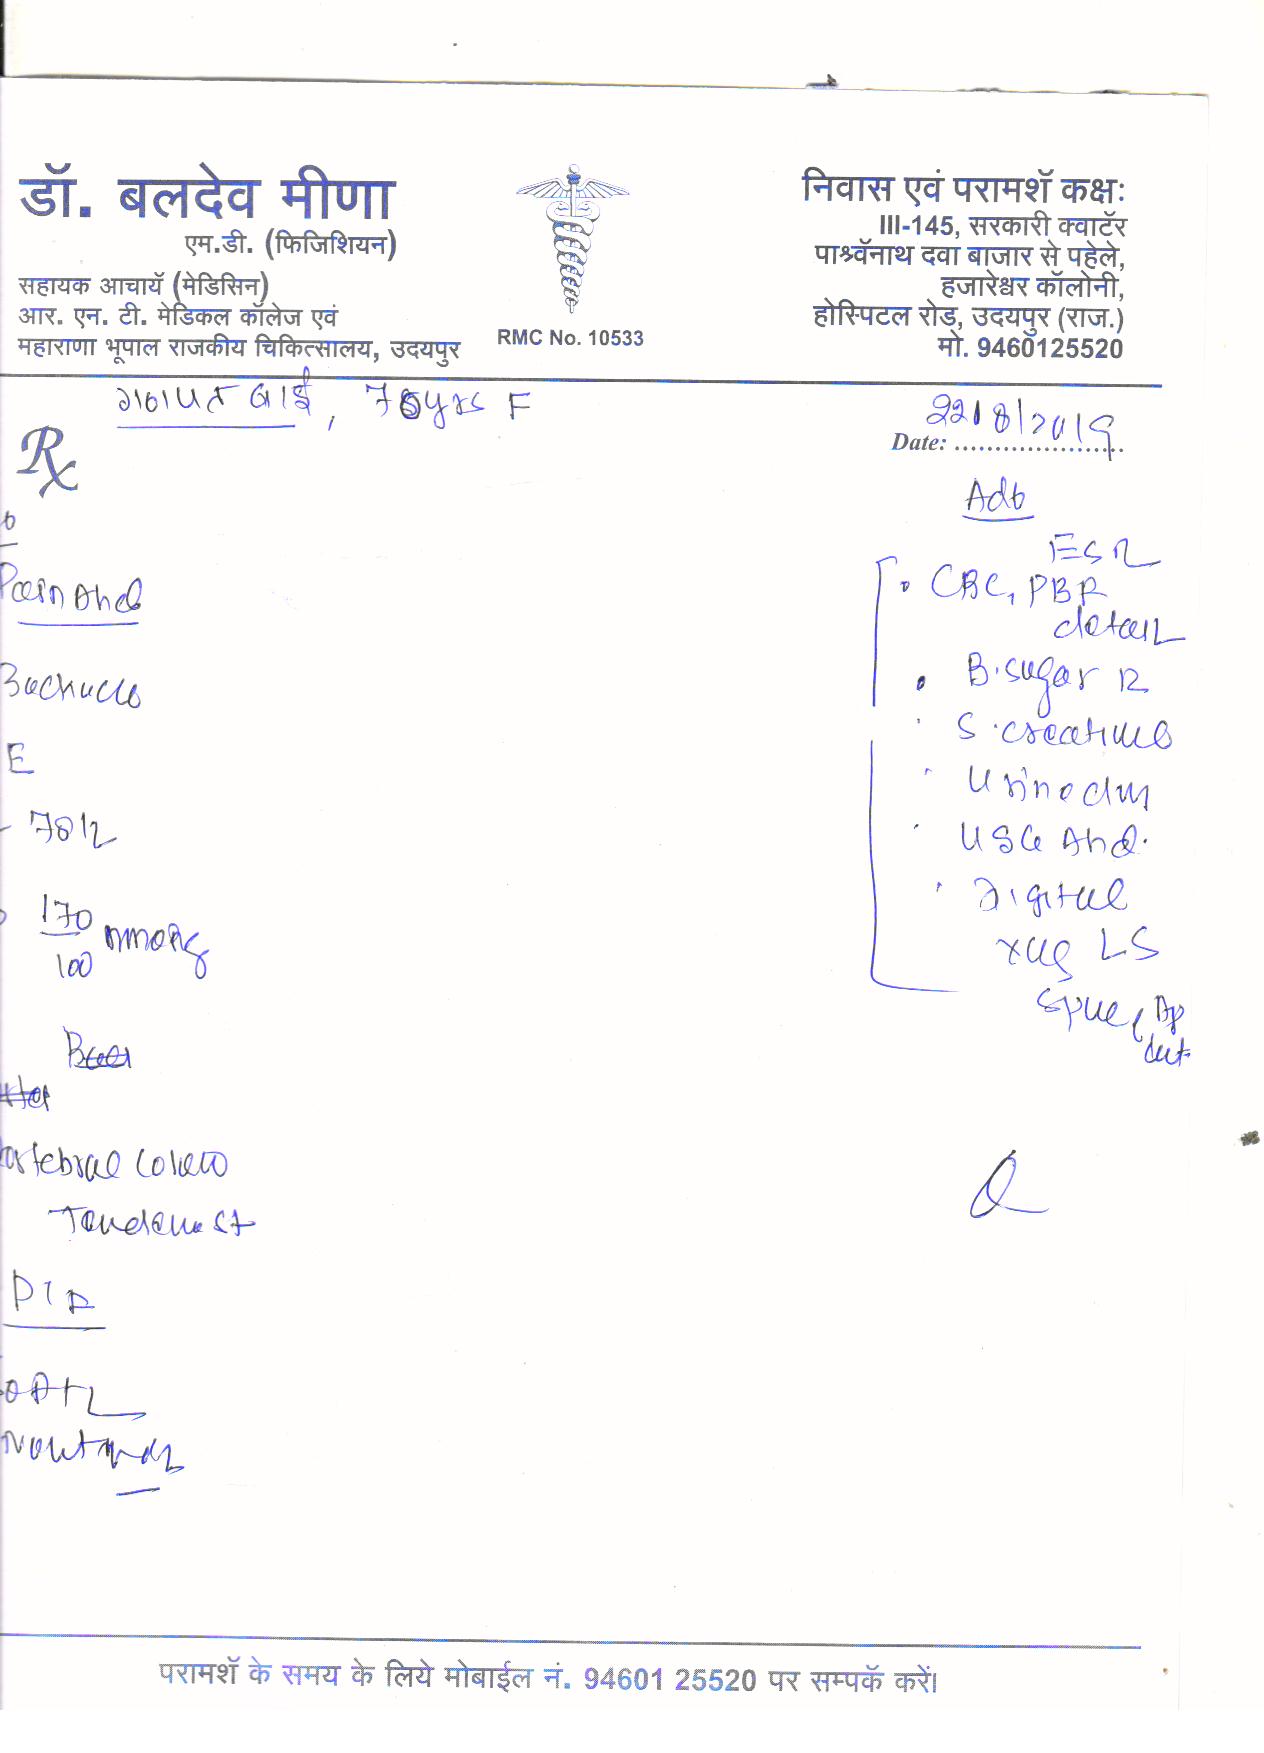 डॉ. बलदेव मीणा
एम.डी. (फिजिशियन)
सहायक आचार्य (मेडिसिन)
आर. एन. टी. मेडिकल कॉलेज एवं
महाराणा भूपाल राजकीय चिकित्सालय, उदयपुर
RMC No. 10533
निवास एवं परामर्श कक्षः
III-145, सरकारी क्वार्टर
पार्श्वनाथ दवा बाजार से पहेले,
हजारेश्वर कॉलोनी,
होस्पिटल रोड़, उदयपुर (राज.)
मो. 9460125520
बाई, yrs F
Date: 22/8/2019
Rx
Pain Abd
E
78/
170
100 mmHg
Vertebral
Tenderness
Adv
ESR
CBC, PBF
detail
B. sugar R
S. creatinine
Urine
USG Abd.
Digital
Xray LS
Spine, AP
Lat
परामर्श के समय के लिये मोबाईल नं. 94601 25520 पर सम्पर्क करें।